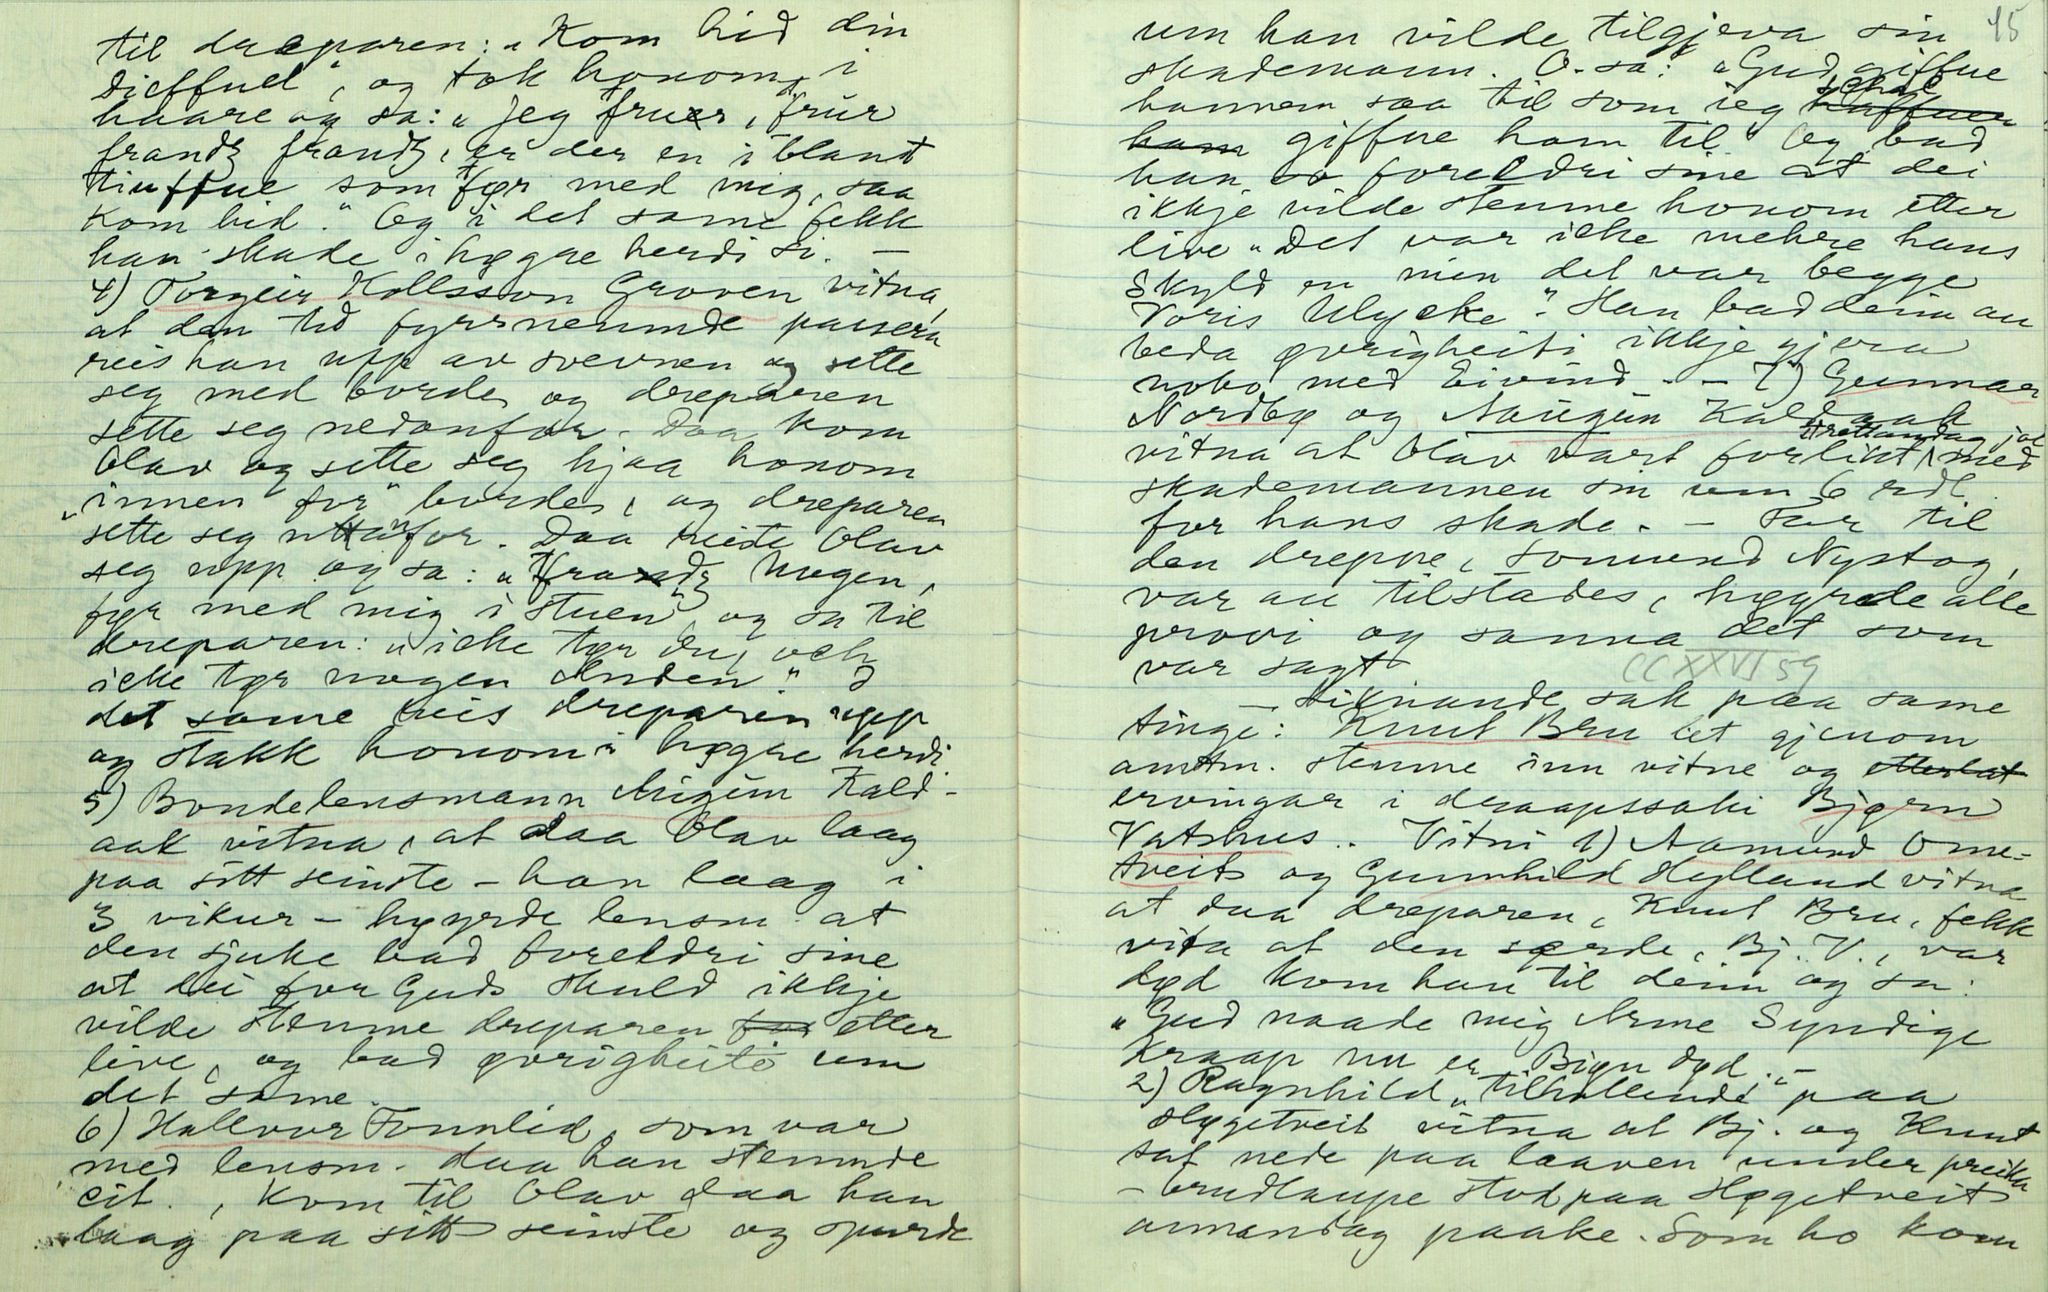 til dreparen: „Kom hid din
Dieffuel“, og tok honom i
haare og sa: „Jeg fruer, frur
frandz frandz, er der en iblant
tiuffue som tør med mig, saa
kom hid.“ Og i det same fekk
han skade i høgre herdi si. —
4) Torgeir Kollsson Groven vitna,
at den tid fyrrnemnde passera
reis han upp av svevnen og sette
seg med borde, og dreparen
sette seg nedanfor. Daa kom
Olav og sette seg hjaa honom
„innen for“ borde, og dreparen
sette seg uttanfor. Daa reiste Olav
seg upp og sa: „Frandz Nogen,
tør med mig i stuen“, og sa til
dreparen: „icke tør du, och
icke tør nogen Anden.“ I
det same reis dreparen upp
og stakk honom i høgre herdi.
5) Bondelensmann Augun Kald-
aak vitna, at daa Olav laag
paa sitt seinste – han laag i
3 vikur – høyrde lensm. at
den sjuke bad foreldri sine
at dei for Guds skuld ikkje
vilde stemne dreparen for etter
live, og bad øvrigheiti um
det same.
6) Hallvor Tonnlid, som var
med lensm. daa han stemnde
cit., kom til Olav daa han
laag paa sitt seinste og spurde
45
um han vilde tilgjeva sin
skademann. O. sa: „Gud giffue
hannem saa til som ieg haffuer schal
ham giffue ham til“ Og bad
han foreldri sine at dei
ikkje vilde stemne honom etter
live „Det var icke mehre hans
Skyld en min det var begge
Voris Ulycke“. Han bad deim au
beda øvrigheiti ikkje gjera
noko med Eivind. – 7) Gunnar
Nordbø og Aaugun Kaldaak
vitna at Olav vart forlikt trettandag jol med
skademannen sin um 6 rdl.
for hans skade. — Far til
den drepne, Somund Nystog,
var au tilstades, høyrde alle
provi og sanna det som
var sagt
CCXXVI 59
— Liknande sak paa same
tinge: Knut Bru let gjenom
amtm. stemne inn vitne og etterlat
ervingar i draapssaki Bjørn
Vatshus.. Vitni 1) Aamund Ome-
tveit og Gunnhild Høylland vitna
at daa dreparen, Knut Bru, fekk
vita at den særde, Bj. V., var
død kom han til deim og sa:
„Gud naade mig Arme Syndige
Kraap nu er Biøn død.“ –
2) Ragnhild „tilhallende“ paa
Høgetveit vitna at Bj. og Knut
sat nede paa laaven under preika
– brudlaupe stod paa Høgetveit
annandag paake. Som ho kom